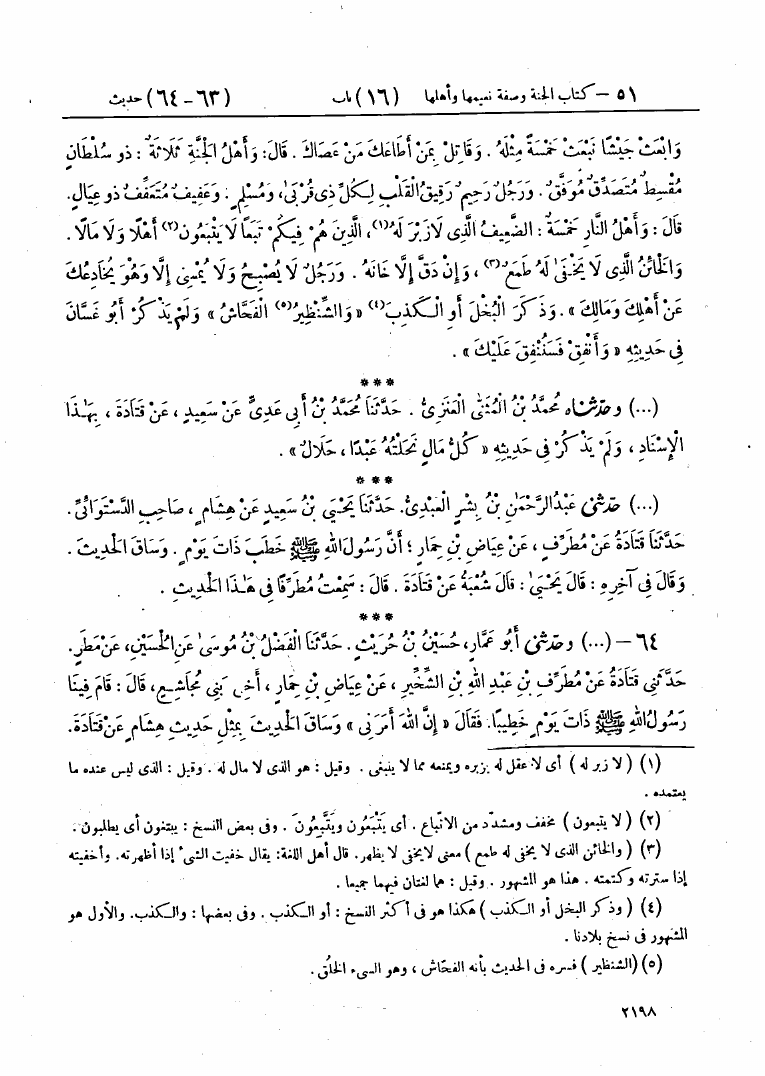 ٥١ – كتاب الجنة وصفة نعيمها وأهلها (١٦) باب (٦٣–٦٤) حديث
وَابْعَثْ جَيْشًا نَبْعَثْ خَمْسَةً مِثْلَهُ . وَقَاتِلْ بِمَنْ أَطَاعَكَ مَنْ عَصَاكَ . قَالَ: وَأَهْلُ الْجَنَّةِ ثَلَاثَةٌ : ذو سُلْطَانٍ
مُقْسِطٌ مُتَصَدِّقٌ مُوَفَّقٌ . وَرَجُلٌ رَحِيمٌ رَقِيقُ الْقَلْبِ لِكُلِّ ذِي قُرْبَىٰ، وَمُسْلِمٍ . وَعَفِيفٌ مُتَعَفِّفٌ ذو عِيَالٍ.
قَالَ : وَأَهْلُ النَّارِ خَمْسَةٌ : الضَّعِيفُ الَّذِى لَا زَبْرَ لَهُ(١)، الَّذِينَ هُمْ فِيكُمْ تَبَعًا لَا يَتْبَعُونَ(٢) أَهْلًا وَلَا مَالًا .
وَالْخَائِنُ الَّذِى لَا يَخْفَىٰ لَهُ طَمَعٌ(٣) ، وَإِنْ دَقَّ إِلَّا خَانَهُ . وَرَجُلٌ لَا يُصْبِحُ وَلَا يُمْسِى إِلَّا وَهُوَ يُخَادِعُكَ
عَنْ أَهْلِكَ وَمَالِكَ » . وَذَكَرَ الْبُخْلَ أَوِ الْكَذِبَ(٤) « وَالشِّنْظِيرُ(٥) الْفَحَّاشُ » وَلَمْ يَذْكُرْ أَبُو غَسَّانَ
فِى حَدِيثِهِ « وَأَنْفِقْ فَسَنُنْفِقَ عَلَيْكَ » .
***
(...) وحدثناه مُحَمَّدُ بْنُ الْمُثَنَّى الْعَنَزِىُّ . حَدَّثَنَا مُحَمَّدُ بْنُ أَبِى عَدِىٍّ عَنْ سَعِيدٍ ، عَنْ قَتَادَةَ ، بِهَـٰذَا
الْإِسْنَادِ ، وَلَمْ يَذْكُرْ فِى حَدِيثِهِ « كُلُّ مَالٍ نَحَلْتُهُ عَبْدًا ، حَلَالٌ » .
***
(...) حدثنى عَبْدُ الرَّحْمَنِ بْنُ بِشْرٍ الْعَبْدِىُّ. حَدَّثَنَا يَحْيَىٰ بْنُ سَعِيدٍ عَنْ هِشَامٍ ، صَاحِبِ الدَّسْتَوَائِىِّ.
حَدَّثَنَا قَتَادَةُ عَنْ مُطَرِّفٍ ، عَنْ عِيَاضِ بْنِ حِمَارٍ ؛ أَنَّ رَسُولَ اللهِ ﷺ خَطَبَ ذَاتَ يَوْمٍ . وَسَاقَ الْحَدِيثَ .
وَقَالَ فِى آخِرِهِ : قَالَ يَحْيَىٰ : قَالَ شُعْبَةُ عَنْ قَتَادَةَ . قَالَ : سَمِعْتُ مُطَرِّفًا فِى هَـٰذَا الْحَدِيثِ .
***
٦٤ – (...) وحدثنى أَبُو عَمَّارٍ، حُسَيْنُ بْنُ حُرَيْثٍ . حَدَّثَنَا الْفَضْلُ بْنُ مُوسَىٰ عَنِ الْحُسَيْنِ، عَنْ مَطَرٍ.
حَدَّثَنِى قَتَادَةُ عَنْ مُطَرِّفِ بْنِ عَبْدِ اللهِ بْنِ الشِّخِّيرِ ، عَنْ عِيَاضِ بْنِ حِمَارٍ ، أَخِى بَنِى مُجَاشِعٍ، قَالَ : قَامَ فِينَا
رَسُولُ اللهِ ﷺ ذَاتَ يَوْمٍ خَطِيبًا. فَقَالَ « إِنَّ اللهَ أَمَرَنِى » وَسَاقَ الْحَدِيثَ بِمِثْلِ حَدِيثِ هِشَامٍ عَنْ قَتَادَةَ.
(١) ( لا زبر له ) أى لا عقل له يزبره ويمنعه مما لا ينبغى . وقيل : هو الذى لا مال له . وقيل : الذى ليس عنده ما
يعتمده .
(٢) ( لا يتبعون ) مخفف ومشدّد من الاتّباع . أى يَتْبَعُونَ ويَتَّبِعُونَ . وفى بعض النسخ : يبتغون أى يطلبون .
(٣) ( والخائن الذى لا يخفى له طمع ) معنى لا يخفى لا يظهر. قال أهل اللغة: يقال خفيت الشىء إذا أظهرته. وأخفيته
إذا سترته وكتمته . هذا هو المشهور . وقيل : هما لغتان فيهما جميعا .
(٤) ( وذكر البخل أو الكذب ) هكذا هو فى أكثر النسخ : أو الكذب . وفى بعضها : والكذب. والأول هو
المشهور فى نسخ بلادنا .
(٥) (الشنظير ) فسره فى الحديث بأنه الفحّاش ، وهو السيء الخلُق .
٢١٩٨